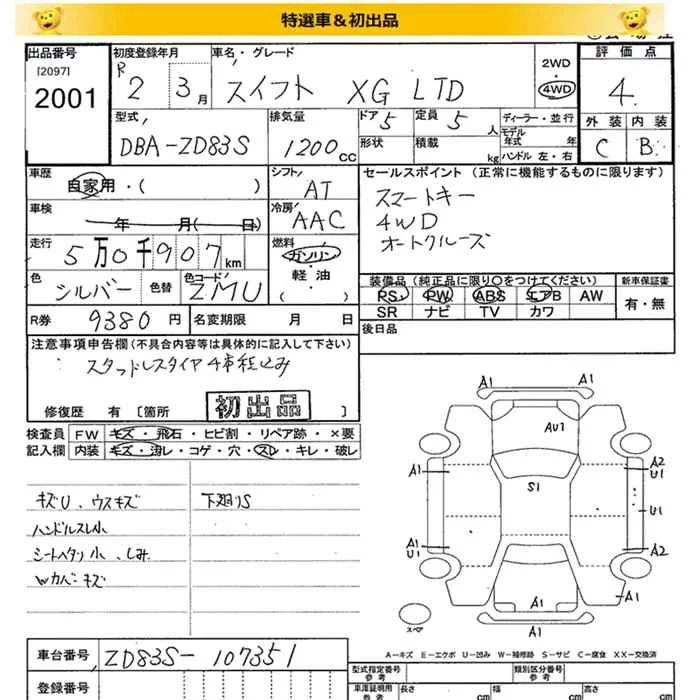 特選車＆初出品
出品番号 [2097] 2001
初度登録年月 R 2 3月
車名・グレード スイフト XG LTD
2WD・4WD
評価点 4
外装 C 内装 B
型式 DBA-ZD83S
排気量 1200cc
ドア 5 形状
定員 5人 積載 kg
ディーラー・並行
モデル年式 年
ハンドル 左・右
車歴 自家用・( )
シフト AT
セールスポイント (正常に機能するものに限ります)
スマートキー
4WD
オートクルーズ
車検 年 月( 日)
冷房 AAC
走行 5万0千907km
燃料 ガソリン・軽・油 ( )
色 シルバー 色替
色コード ZMU
装備品 (純正品に限り○をつけてください)
PS PW ABS エアB AW
SR ナビ TV カワ
新車保証書 有・無
R券 9380円
名変期限 月 日
後日品
注意事項申告欄 (不具合内容等は具体的に記入して下さい)
スタッドレスタイヤ4本積込み
修復歴 有 [箇所 ]
初出品
検査員記入欄
FW キズ・飛石・ヒビ割・リペア跡・×要
内装 キズ・汚レ・コゲ・穴・スレ・キレ・破レ
キズU、ウスキズ 下廻りS
ハンドルスレ小
シートヘタリ小、しみ
Wカバーキズ
A1 A1
AU1
A1 A2
U1
S1
U1
A1 A2
U1
A1
A1
A1
スペア
A―キズ E―エクボ U―凹み W―補修跡 S―サビ C―腐食 XX―交換済
車台番号 ZD83S-107351
登録番号
型式指定番号 参考
類別区分番号 参考
車庫証明用 参考 長さ cm 幅 cm 高さ cm